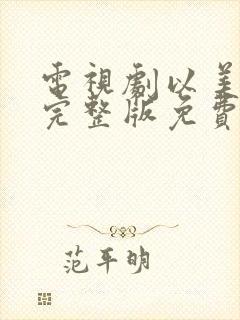 電視劇以美
完整版免費
范平明